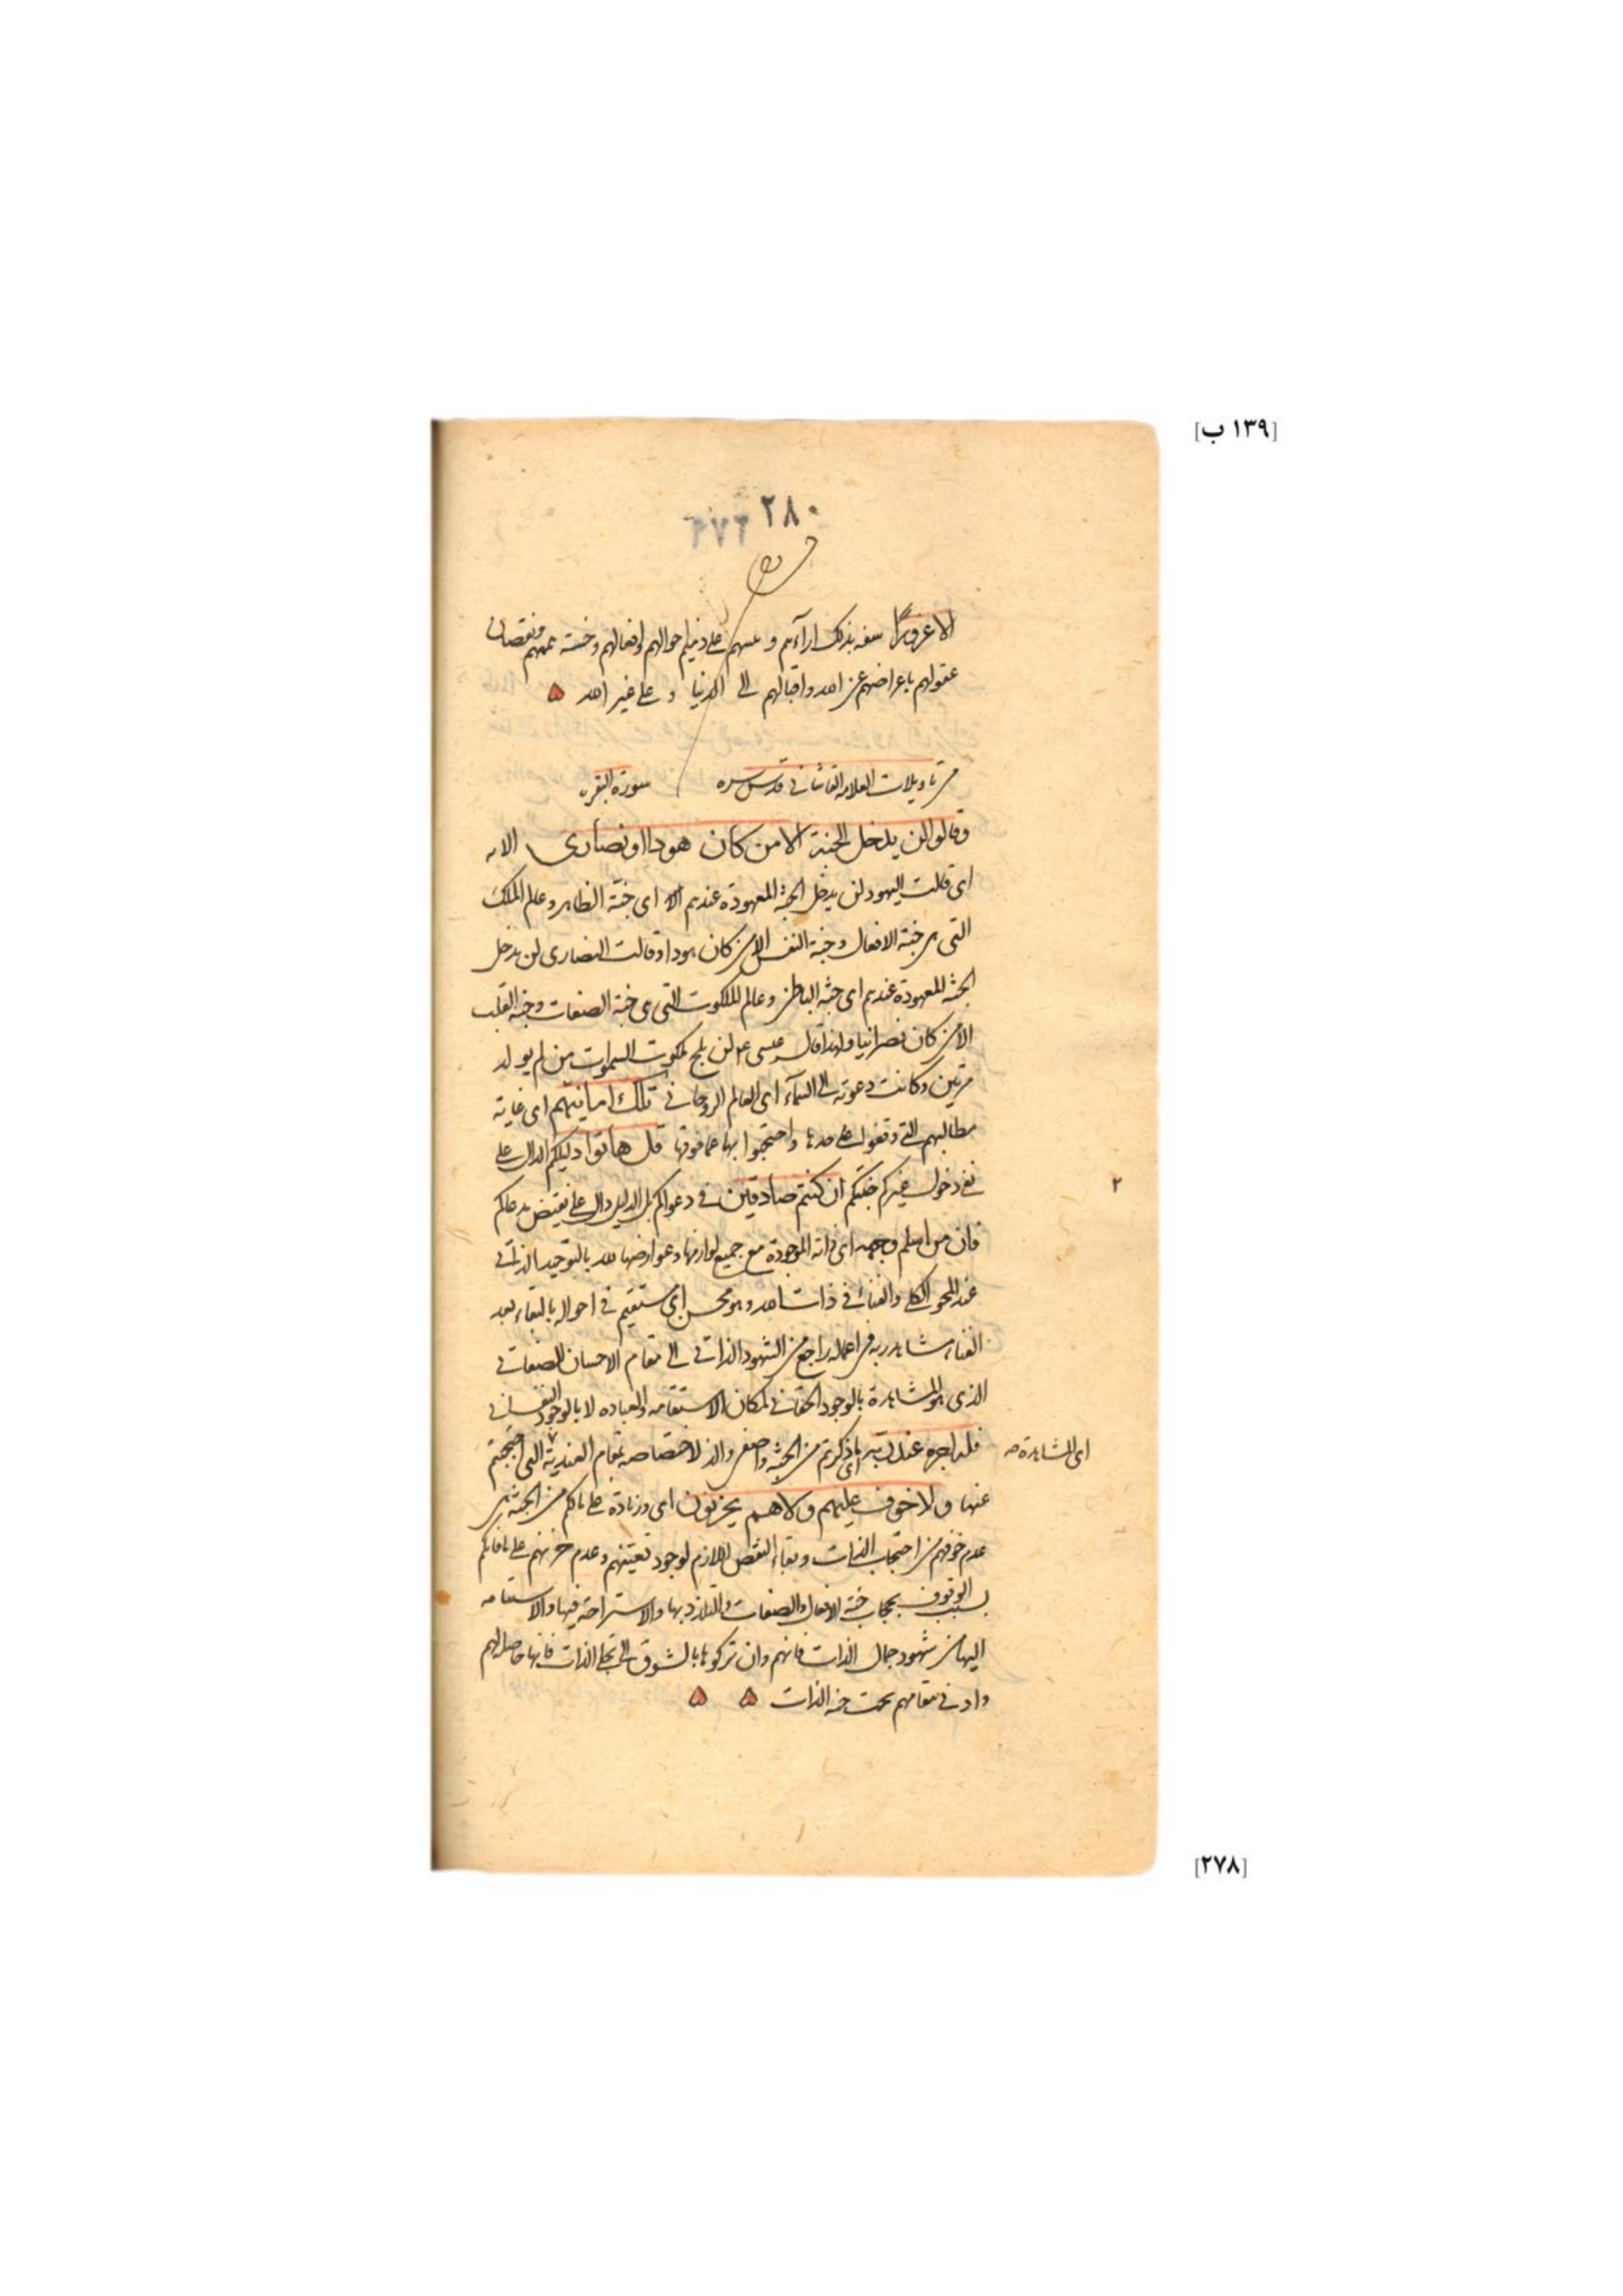 [١٣٩ ب]
٢٨٠
٢٧٦
الا غرورا سفه بذلك اراءهم و على دنيا احوالهم وافعالهم وخسة هممهم ونقصان
عقولهم باعراضهم عن الله واقبالهم الى الدنيا و على غير الله
من تاويلات العلامه القاشاني قدس سره سورة البقره
وقالوا لن يدخل الجنة الا من كان هودا او نصارى الايه
اى قالت اليهود لن يدخل الجنة المعهودة عندهم الا اى جنة الظاهر وعالم الملك
التى هى جنة الافعال وجنة النفس الا من كان هودا وقالت النصارى لن يدخل
الجنة المعهودة عندهم اى جنة الباطن وعالم الملكوت التى هى جنة الصفات وجنة القلب
الا من كان نصرانيا ولهذا قال عيسى عم لن يلج ملكوت السموات من لم يولد
مرتين وكانت دعوته الى السمآء اى العالم الروحاني تلك امانيهم اى غاية
مطالبهم التي وقفوا على حدها واحتجبوا بها عما فوقها قل هاتوا دليلكم الدال على
نفي دخول غيركم جنتكم ان كنتم صادقين في دعواكم بل الدليل دال على نقيض مدعاكم
فان من اسلم وجهه اى ذاته الموجودة مع جميع لوازمها وعوارضها لله بالتوحيد الذاتي
عند المحو الكلى والفناء في ذات الله وهو محسن اى مستقيم في احواله بالبقاء بعد
الفناء مشاهد ربه في اعماله راجع من الشهود الذاتي الى مقام الاحسان الصفاتي
الذى هو المشاهدة بالوجود الحقاني لمكان الاستقامة والعبادة لا بالوجود النفساني
فله اجره عند ربه اى ما ذكرتم من الجنة واصفى والذ لاختصاصه بمقام العندية التى احتجبتم
اى المشاهدة صه
عنها ولا خوف عليهم ولا هم يحزنون اى وزيادة على مالكم من الجنة هى
عدم خوفهم من احتجاب الذات وبقاء النقص اللازم لوجود تعينهم وعدم حزنهم على ما فاتكم
بسبب الوقوف بحجاب جنة الافعال والصفات والتلذذ بها والاستراحة فيها والاستقامه
اليها من شهود جمال الذات فانهم وان تركوها بالشوق الى تجلى الذات فانها حاصلة لهم
وادنى مقامهم تحت جنة الذات
٢
[٢٧٨]